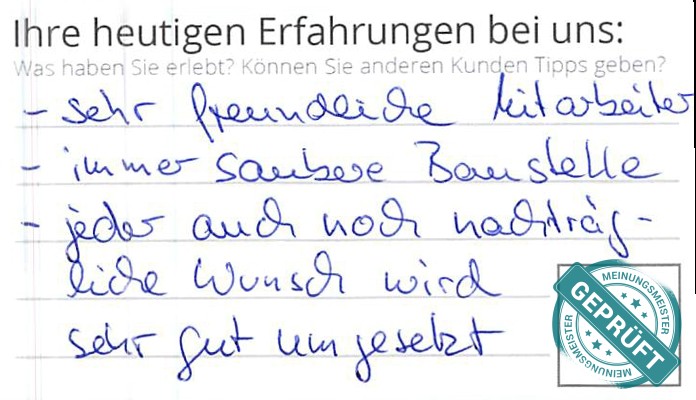 Ihre heutigen Erfahrungen bei uns:
Was haben Sie erlebt? Können Sie anderen Kunden Tipps geben?
- sehr freundliche Mitarbeiter
- immer saubere Baustelle
- jeder auch noch nachträg-
liche Wunsch wird
sehr gut umgesetzt
MEINUNGSMEISTER
GEPRÜFT
MEINUNGSMEISTER